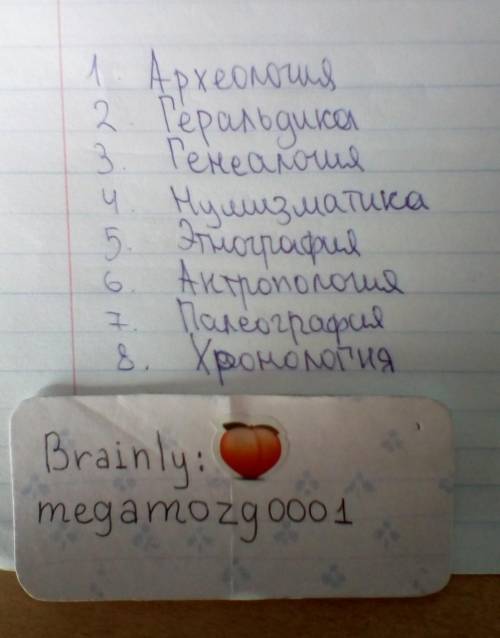 1. Археология
2. Геральдика
3. Генеалогия
4 Нумизматика
5. Этнография
6. Антропология
7. Палеография
8. Хронология
Brainly:
megamozg0001